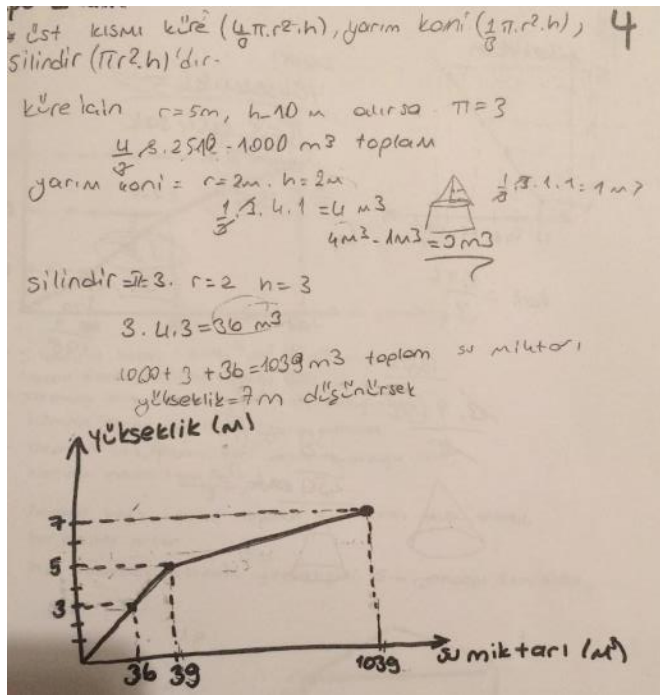 4
* üst kısmı küre (4/3 π.r².h), yarım koni (1/3 π.r².h),
silindir (πr².h)'dır.
küre için r=5m, h=10 m alırsa π=3
4/3 .3.2510 = 1000 m3 toplam
yarım koni = r=2m. h=2m
1/3 .3. 4.1 = 4 m3
1/3 .3.1.1 = 1 m3
4m3 - 1m3 = 3m3
silindir = π=3. r=2 h=3
3.4.3 = 36 m3
1000 + 3 + 36 = 1039 m3 toplam su miktarı
yükseklik = 7m düşünürsek
yükseklik (m)
7
5
3
36 39 1039
su miktarı (m3)